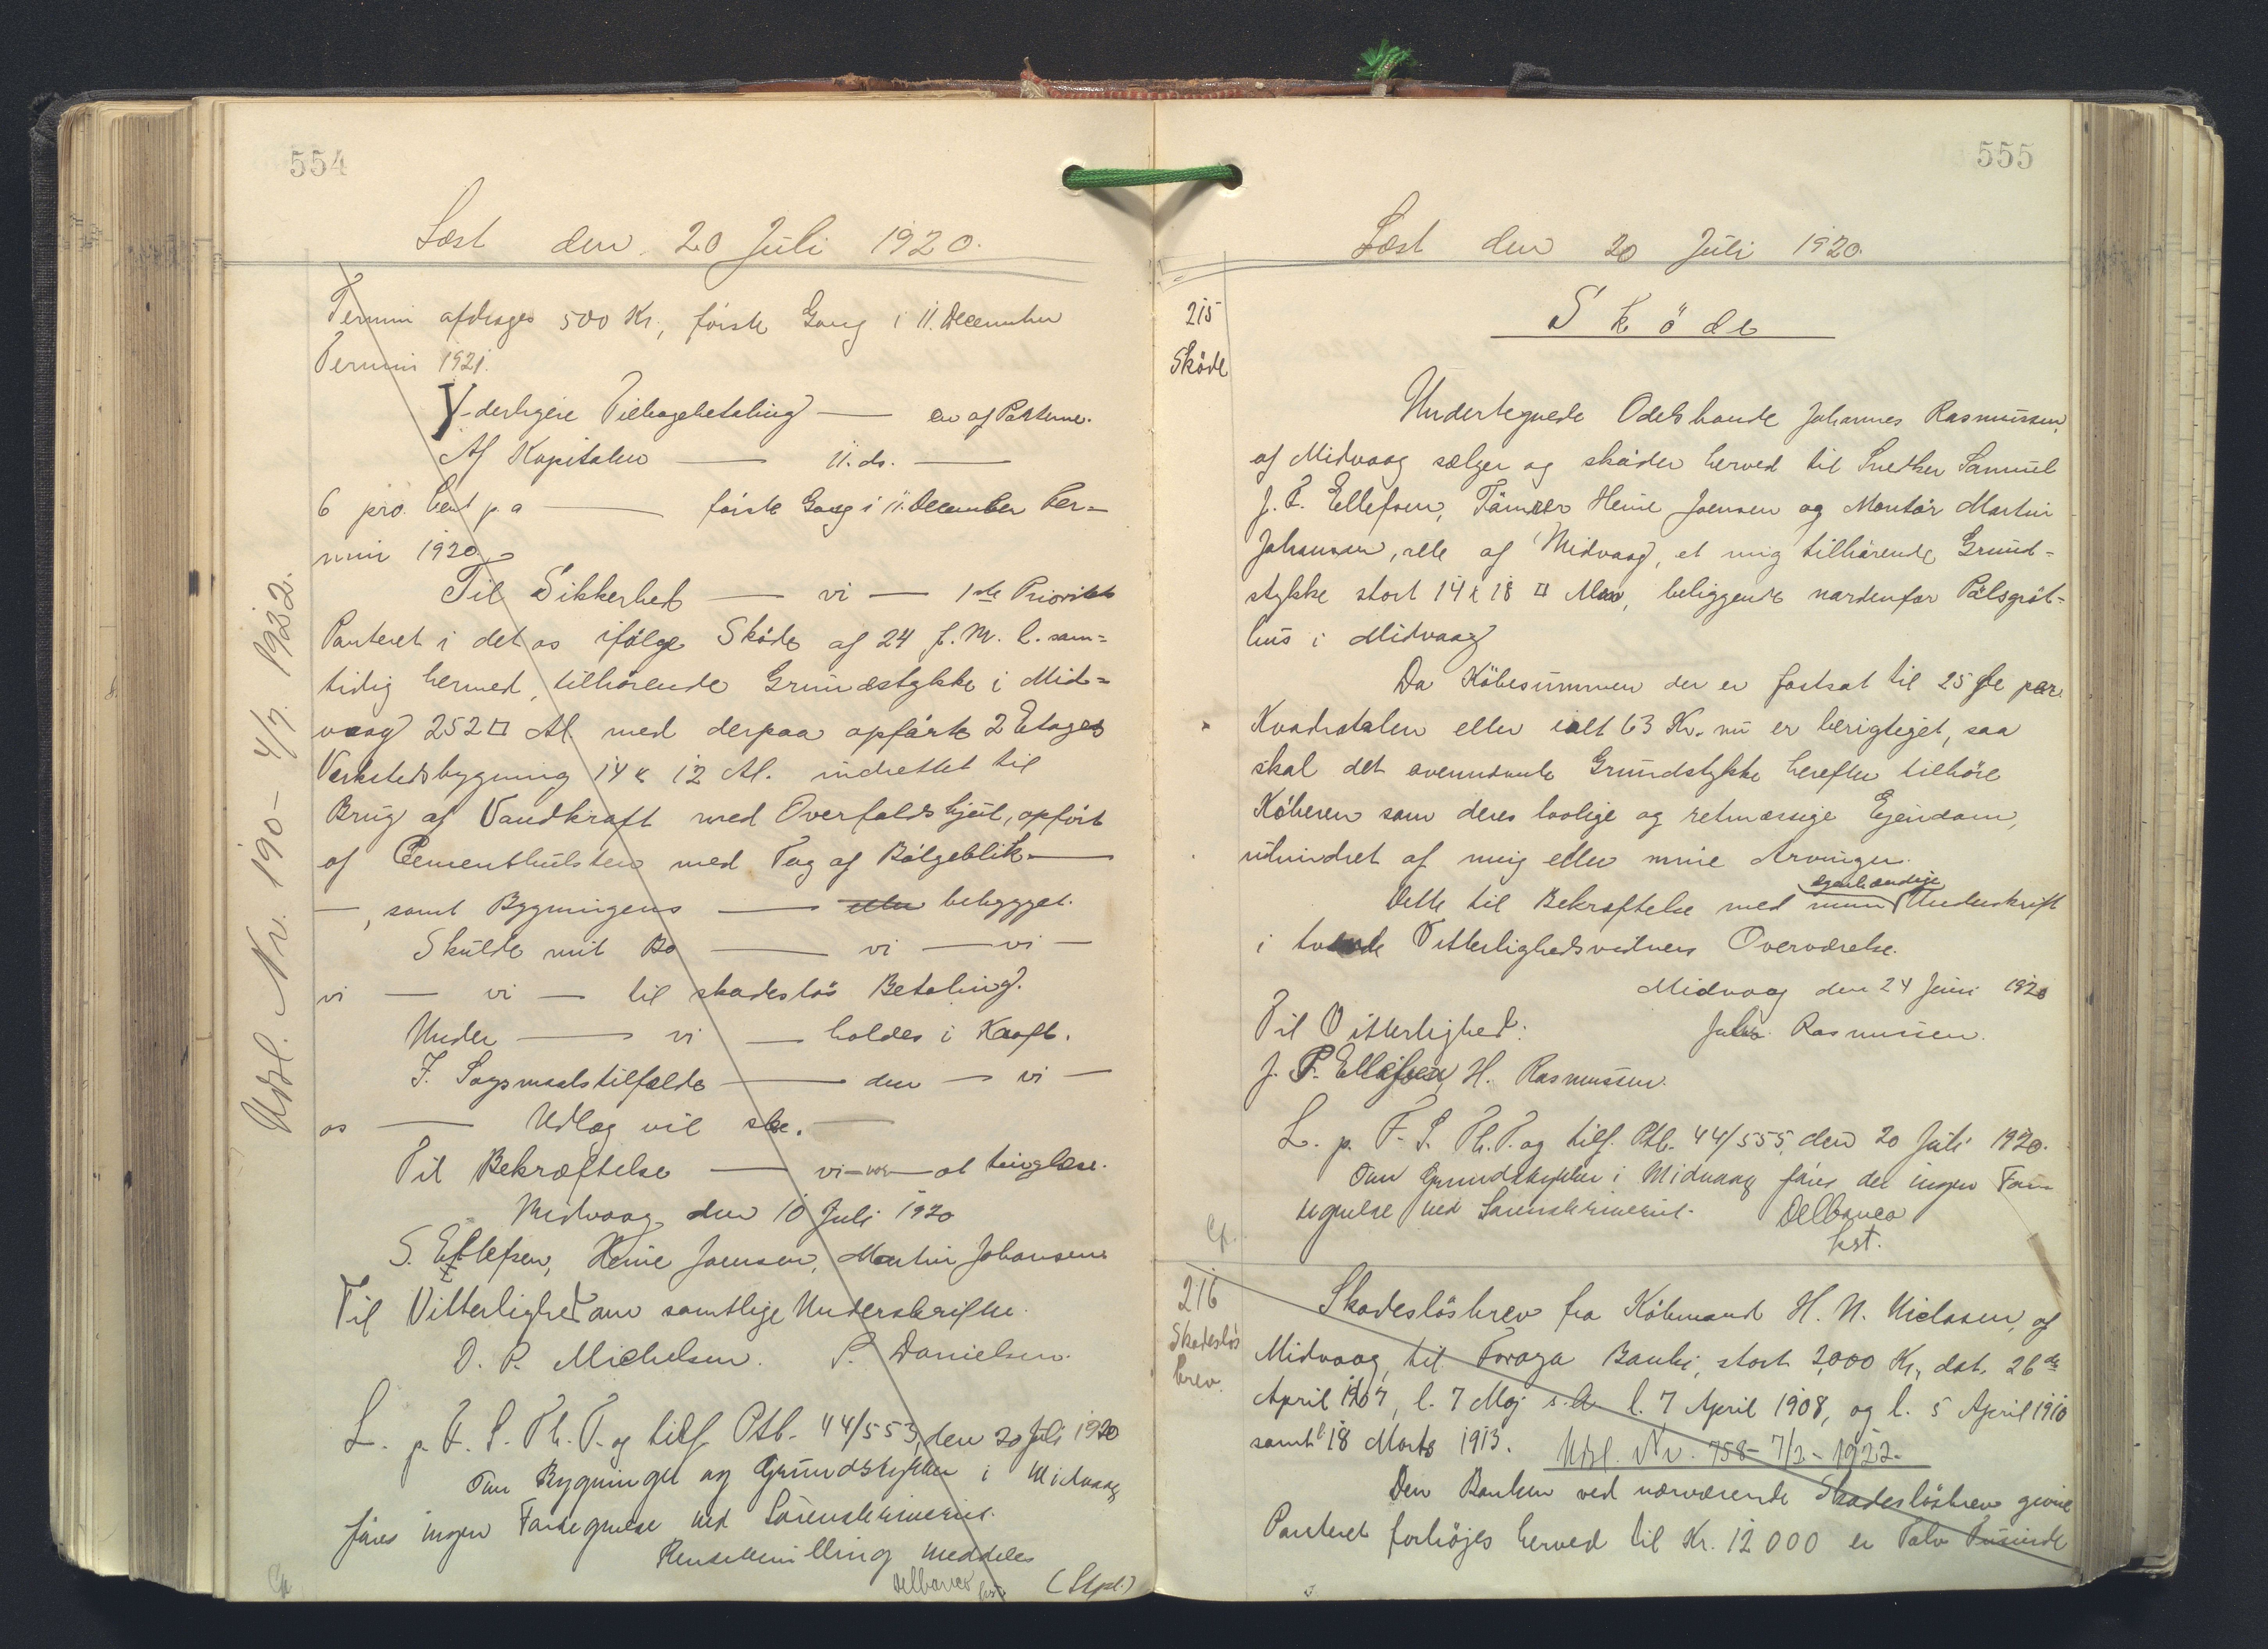 554
Læst den 20 Juli 1920.
Termin afdrages 500 Kr., første Gang i 11. December
Termin 1921.
Yderligere Tilbagebetaling — en af Parterne.
Af Kapitalen — 11. ds. —
6 pro. Cent p. a — første Gang i 11. December Ter=
min 1920.
Til Sikkerhed — vi — 1ste Prioritets
Panteret i det os ifølge Skøde af 24 f. M. l. sam=
tidig hermed, tilhørende Grundstykke i Mid=
vaag 252 □ Al. med derpaa opførte 2 Etages
Værkstedsbygning 14 x 12 Al. indrettet til
Brug af Vandkraft med Overfaldshjul, opført
af Cementhulsten med Tag af Bølgeblik —
—, samt Bygningens — eller bebygget.
Skulde mit Bo — vi — vi —
vi — vi — til skadesløs Betaling.
Under — vi — holdes i Kraft.
I Søgsmaalstilfælde — den — vi —
os — Udlæg vil ske. —
Til Bekræftelse — vi — vor — at tinglæse.
Midvaag den 10 Juli 1920
S. Ellefsen, Heine Joensen, Martin Johansen
Til Vitterlighed om samtlige Underskrifter.
D. P. Michelsen. P. Danielsen.
L. p. F. S. Th. T. og tilf. Ptb. 44/553, den 20 Juli 1920
Om Bygninger og Grundstykker i Midvaag
føres ingen Fortegnelse ved Sorenskriveriet.
Genstemilling meddeles
Delbanco kst. (Stpl.)
Udsl. Nr. 190 - 4/7. 1932.
555
Læst den 20 Juli 1920.
215
Skøde
Sköde
Undertegnede Odelsbonde Johannes Rasmussen,
af Midvaag sælger og skøder herved til Snetker Samuel
J. F. Ellefsen, Tømrer Heine Joensen og Montør Martin
Johansen, alle af Midvaag, et mig tilhørende Grund=
stykke stort 14 x 18 □ Alen, beliggende nordenfor Pølsgröt=
hus i Midvaag
Da Købesummen der er fastsat til 25 Øre per.
Kvadratalen eller ialt 63 Kr. nu er berigtiget, saa
skal det ovennævnte Grundstykke herefter tilhøre
Køberen som deres lovlige og retmæssige Ejendom,
uhindret af mig eller mine Arvinger.
egenhændige
Dette til Bekræftelse med min Underskrift
i tvende Vitterlighedsvidners Overværelse.
Midvaag den 24 Juni 1920
Til Vitterlighed: Johs. Rasmussen.
J. P. Ellefsen, H. Rasmussen.
L. p. F. S. Th. T. og tilf. Ptb. 44/555, den 20 Juli 1920.
Om Grundstykker i Midvaag føres der ingen For=
tegnelse ved Sorenskriveriet. Delbanco
kst.
216
Skadesløs
brev.
Skadesløsbrev fra Købmand H. N. Niclasen, af
Midvaag, til Føroya Banki, stort 2,000 Kr., dat. 26de
April 1907, l. 7 Maj s. A. l. 7 April 1908, og l. 5 April 1910
samt l. 18 Marts 1913. Udsl. Nr. 758 - 7/2 - 1922.
Den Banken ved nærværende Skadesløsbrev givne
Panteret forhøjes herved til Kr. 12 000 er Tolv Tusinde